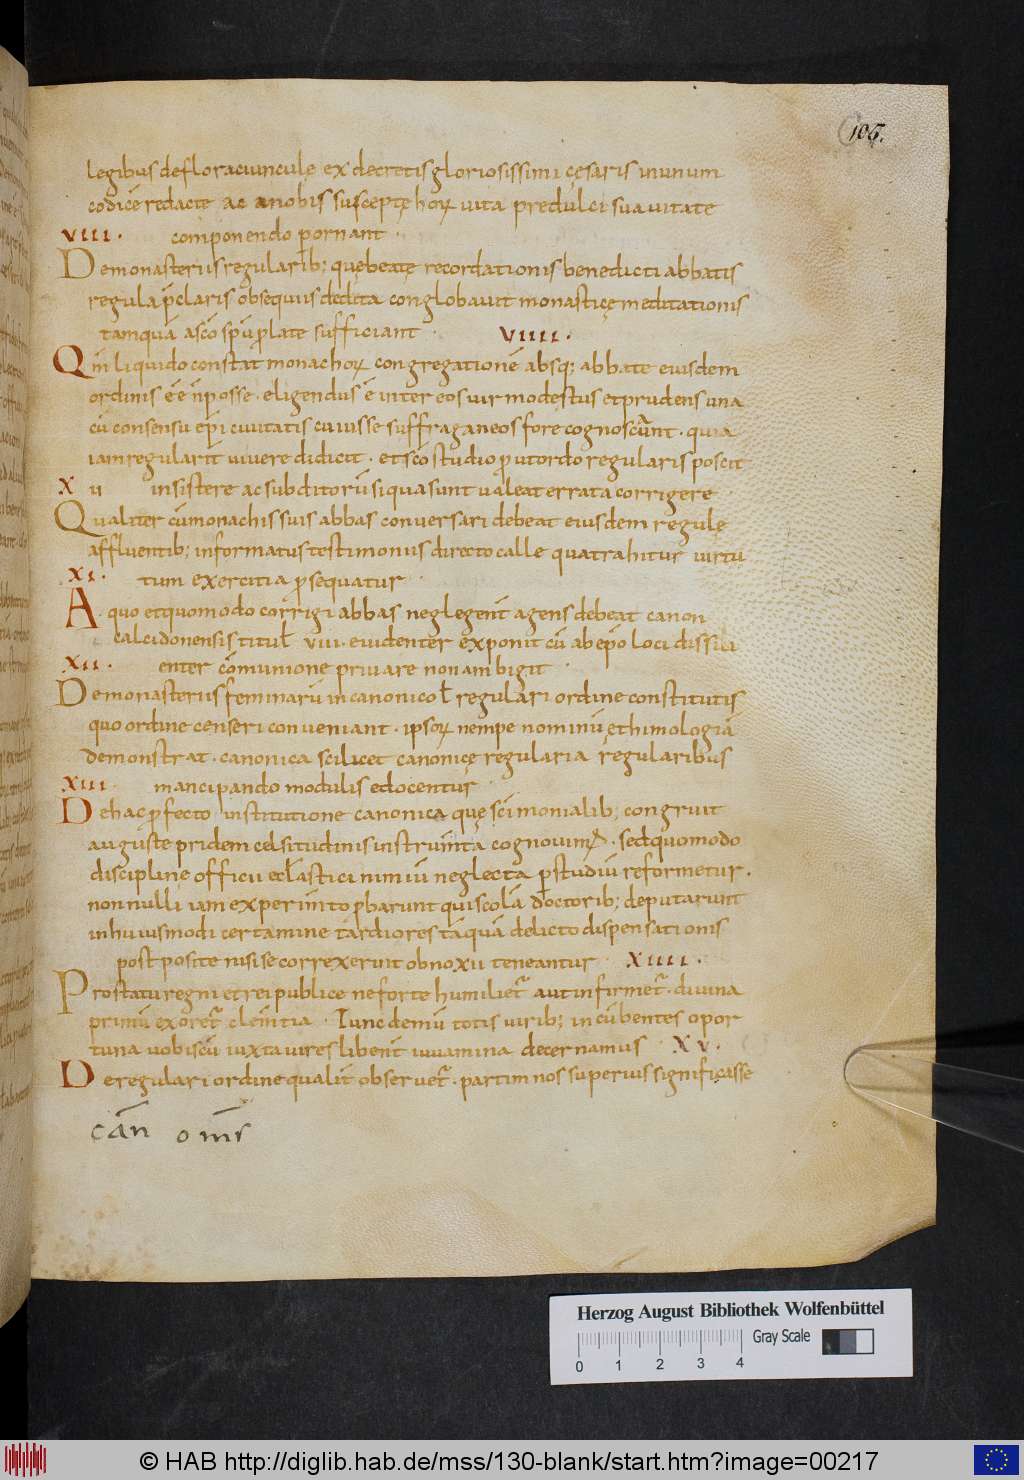 106.
legibus defloraciunculę ex decretis gloriosissimi cęsaris in unum
codicē redacte ac a nobis susceptę horꝝ vita predulci suavitate
VIII. componendo pornant.
De monasteriis regularib; quę beatę recordationis benedicti abbatis
regula p̄claris obsequiis dedita conglobavit monasticę meditationis
tamquā a sc̄o sp̄u plate sufficiant. VIIII.
Qm̄ liquido constat monachoꝝ congregationē absq; abbate eiusdem
ordinis eē n̄ posse. eligendus ē inter eos vir modestus et prudens una
cū consensu ep̄i civitatis cui is se suffraganeos fore cognoscunt. quia
iam regularit vivere didicit. et sc̄o studio put ordo regularis poscit
X insistere ac subditorū si qua sunt valeat errata corrigere
Qualiter cū monachis suis abbas conversari debeat eiusdem regulę
affluentib; informatus testimoniis directo calle qua trahitur virtu
XI. tum exercitia ꝓsequatur.
A quo et quomodo corrigi abbas neglegent̄ agens debeat canon
calcidonensis titul̄ VIII. evidenter exponit cū ab ep̄o loci dissici
XII. enter cōmunione privare non ambigit.
De monasteriis feminarū in canonico ł regulari ordine constitutis
quo ordine censeri conveniant. ipsoꝝ nempe nominū ethimologiā
demonstrat. canonica scilicet canonicę regularia regularibus
XIII. mancipando modulis edocentur
De hac ꝓfecto institutione canonica quę sc̄imonialib; congruit
auguste pridem celsitudinis instrum̄ta cognovim;. sed quomodo
discipline officii ecl̄astici nimiū neglecta p studiū reformetur.
nonnulli iam experim̄to ꝓbarunt qui scolā doctorib; deputarunt
in huiusmodi certamine tardiores tāquā delicto dispensationis
postposite nisi se correxerint obnoxii teneantur XIIII.
Pro statu regni et rei publice ne forte humiliet᷑ aut infirmet᷑. divina
primū exoret᷑ clem̄tia. Tunc demū totis virib; incūbentes opor
tuna vobiscū iuxta vires libent̄ iuvamina decernamus XV.
De regulari ordine qualit̄ observet᷑. partim nos superius significasse
cān om̄s
Herzog August Bibliothek Wolfenbüttel
Gray Scale
0 1 2 3 4
© HAB http://diglib.hab.de/mss/130-blank/start.htm?image=00217